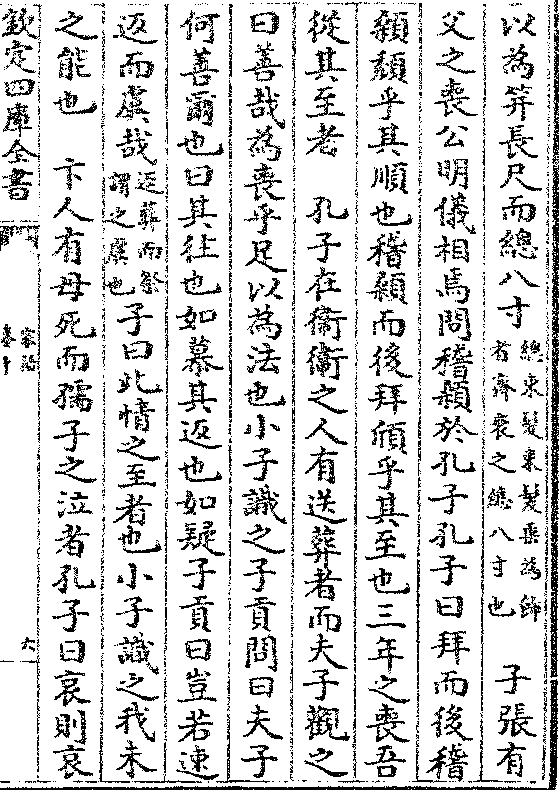 以為笄長尺而總八寸總束髮束髮垂為飾者齊衰之總八寸也　子張有
父之喪公明儀相焉問稽顙於孔子孔子曰拜而後稽
顙頽乎其順也稽顙而後拜頎乎其至也三年之喪吾
從其至者　孔子在衞衞之人有送葬者而夫子觀之
曰善哉為喪乎足以為法也小子識之子貢問曰夫子
何善爾也曰其往也如慕其返也如疑子貢曰豈若速
返而虞哉返葬而祭謂之虞也子曰此情之至者也小子識之我未
之能也　卞人有母死而孺子之泣者孔子曰哀則哀
欽定四庫全書
家語
卷十
六